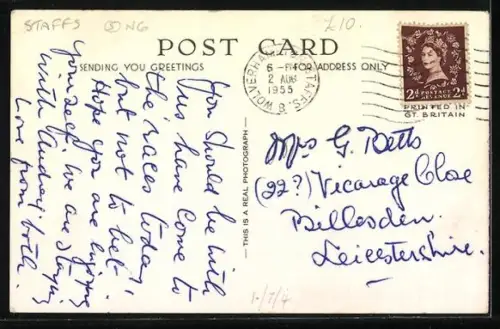 STAFFS
£10.
POST CARD
SENDING YOU GREETINGS
FOR ADDRESS ONLY
WOLVERHAMPTON STAFFS.
6 - PM
2 AUG
1955
B
2d POSTAGE REVENUE 2d
PRINTED IN
GT. BRITAIN
You should be with
us have come to
the races today,
but not to bet.
Hope you are enjoying
yourself. We are staying
with Audrey.
Love from both.
— THIS IS A REAL PHOTOGRAPH —
Mrs G. Betts
(22?) Vicarage Close
Billesdon.
Leicestershire.